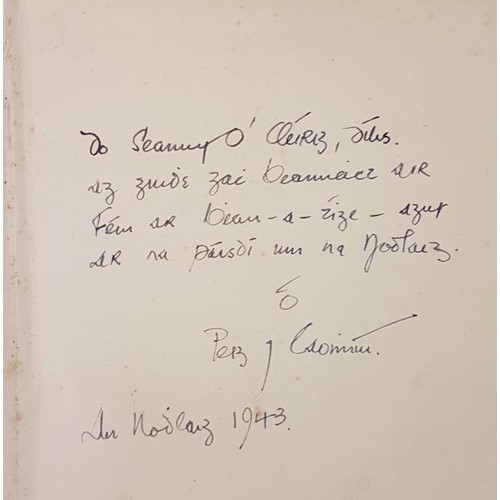 Do Seamus Ó Cléirig, Dílis.
ag guiḋe gaċ beannaċt air
féin ar bean-a-tiġe - agus
ar na páisdí um na Nodlaig.
ó
Peig
An Nodlaig 1943.